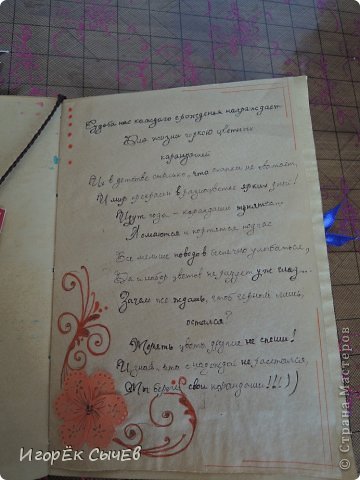 Судьба нас каждого с рождения награждает
Для жизни горстью цветных
карандашей
И в детстве столько, что охапки не хватает,
И мир прекрасен в разноцветье ярких дней!
Идут года – карандаши тупятся,
Ломаются и портятся подчас
Всё меньше поводов беспечно улыбаться,
Да и набор цветов не радует уж глаз...
Зачем же ждать, чтоб чёрный лишь,
остался?
Терять цвета, дружок не спеши!
И знай, что с надеждой не расстался,
Ты береги свои карандаши!!!))
Игорёк СычёВ
© Страна Мастеров